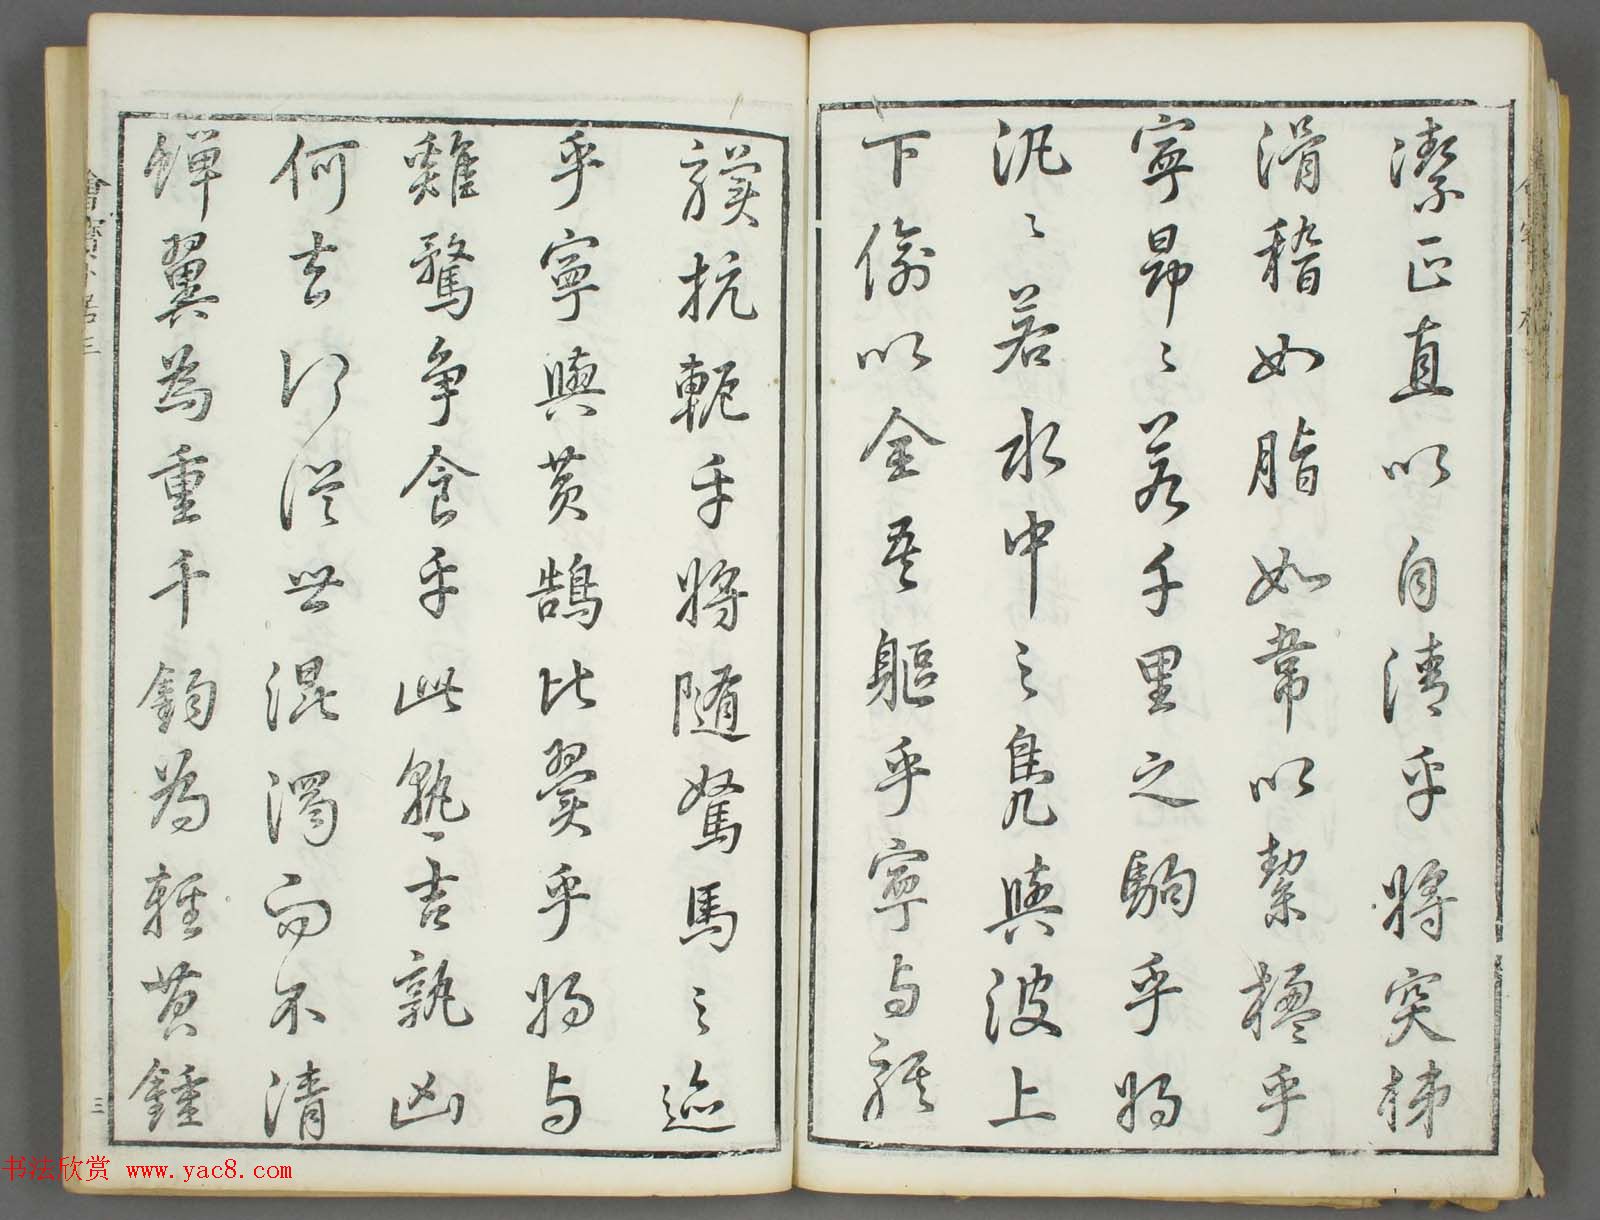 潔正直以自清乎將突梯
滑稽如脂如韋以絜楹乎
寧昂〻若千里之駒乎將
汎〻若水中之鳧與波上
下偷以全吾軀乎寧与騏
驥抗軛乎將隨駑馬之迹
乎寧與黃鵠比翼乎將与
雞鶩争食乎此孰吉孰凶
何去何從世混濁而不清
蟬翼為重千鈞為輕黄鍾
三
书法欣赏 www.yac8.com